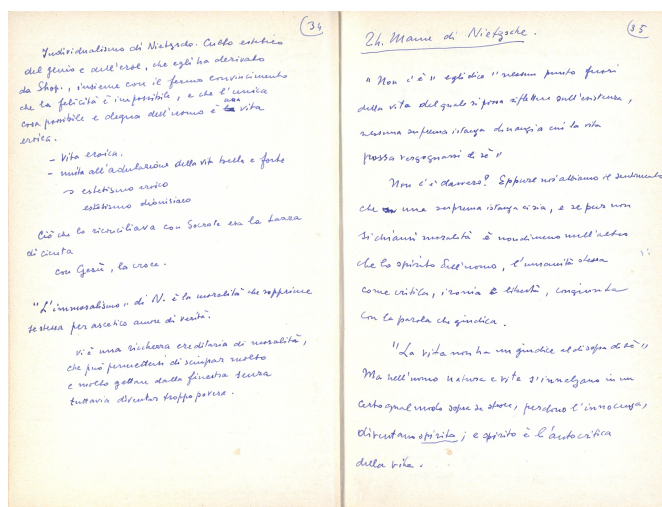 34
Individualismo di Nietzsche. Culto estetico
del genio e dell'eroe, che egli ha derivato
da Shop., insieme con il fermo convincimento
che la felicità è impossibile, e che l'unica
cosa possibile e degna dell'uomo è una vita
eroica.
- Vita eroica.
- unita all'adulazione della vita bella e forte
→ estetismo eroico
estetismo dionisiaco
Ciò che lo riconciliava con Socrate era la tazza
di cicuta
con Gesù, la croce.
"L'immoralismo" di N. è la moralità che sopprime
se stessa per ascetico amore di verità.
Vi è una ricchezza ereditaria di moralità,
che può permettersi di sciupar molto
e molto gettare dalla finestra senza
tuttavia diventar troppo povera.
35
Th. Mann di Nietzsche.
"Non c'è" egli dice "nessun punto fuori
della vita dal quale si possa riflettere sull'esistenza,
nessuna suprema istanza dinanzi a cui la vita
possa vergognarsi di sè"
Non c'è davvero? Eppure noi abbiamo il sentimento
che una suprema istanza ci sia, e se pur non
si chiami moralità è nondimeno null'altro
che lo spirito dell'uomo, l'umanità stessa
come critica, ironia e libertà, congiunta
con la parola che giudica.
"La vita non ha un giudice al di sopra di sè"
Ma nell'uomo natura e vita s'innalzano in un
certo qual modo sopra se stesse, perdono l'innocenza,
diventano spirito; e spirito è l'autocritica
della vita.